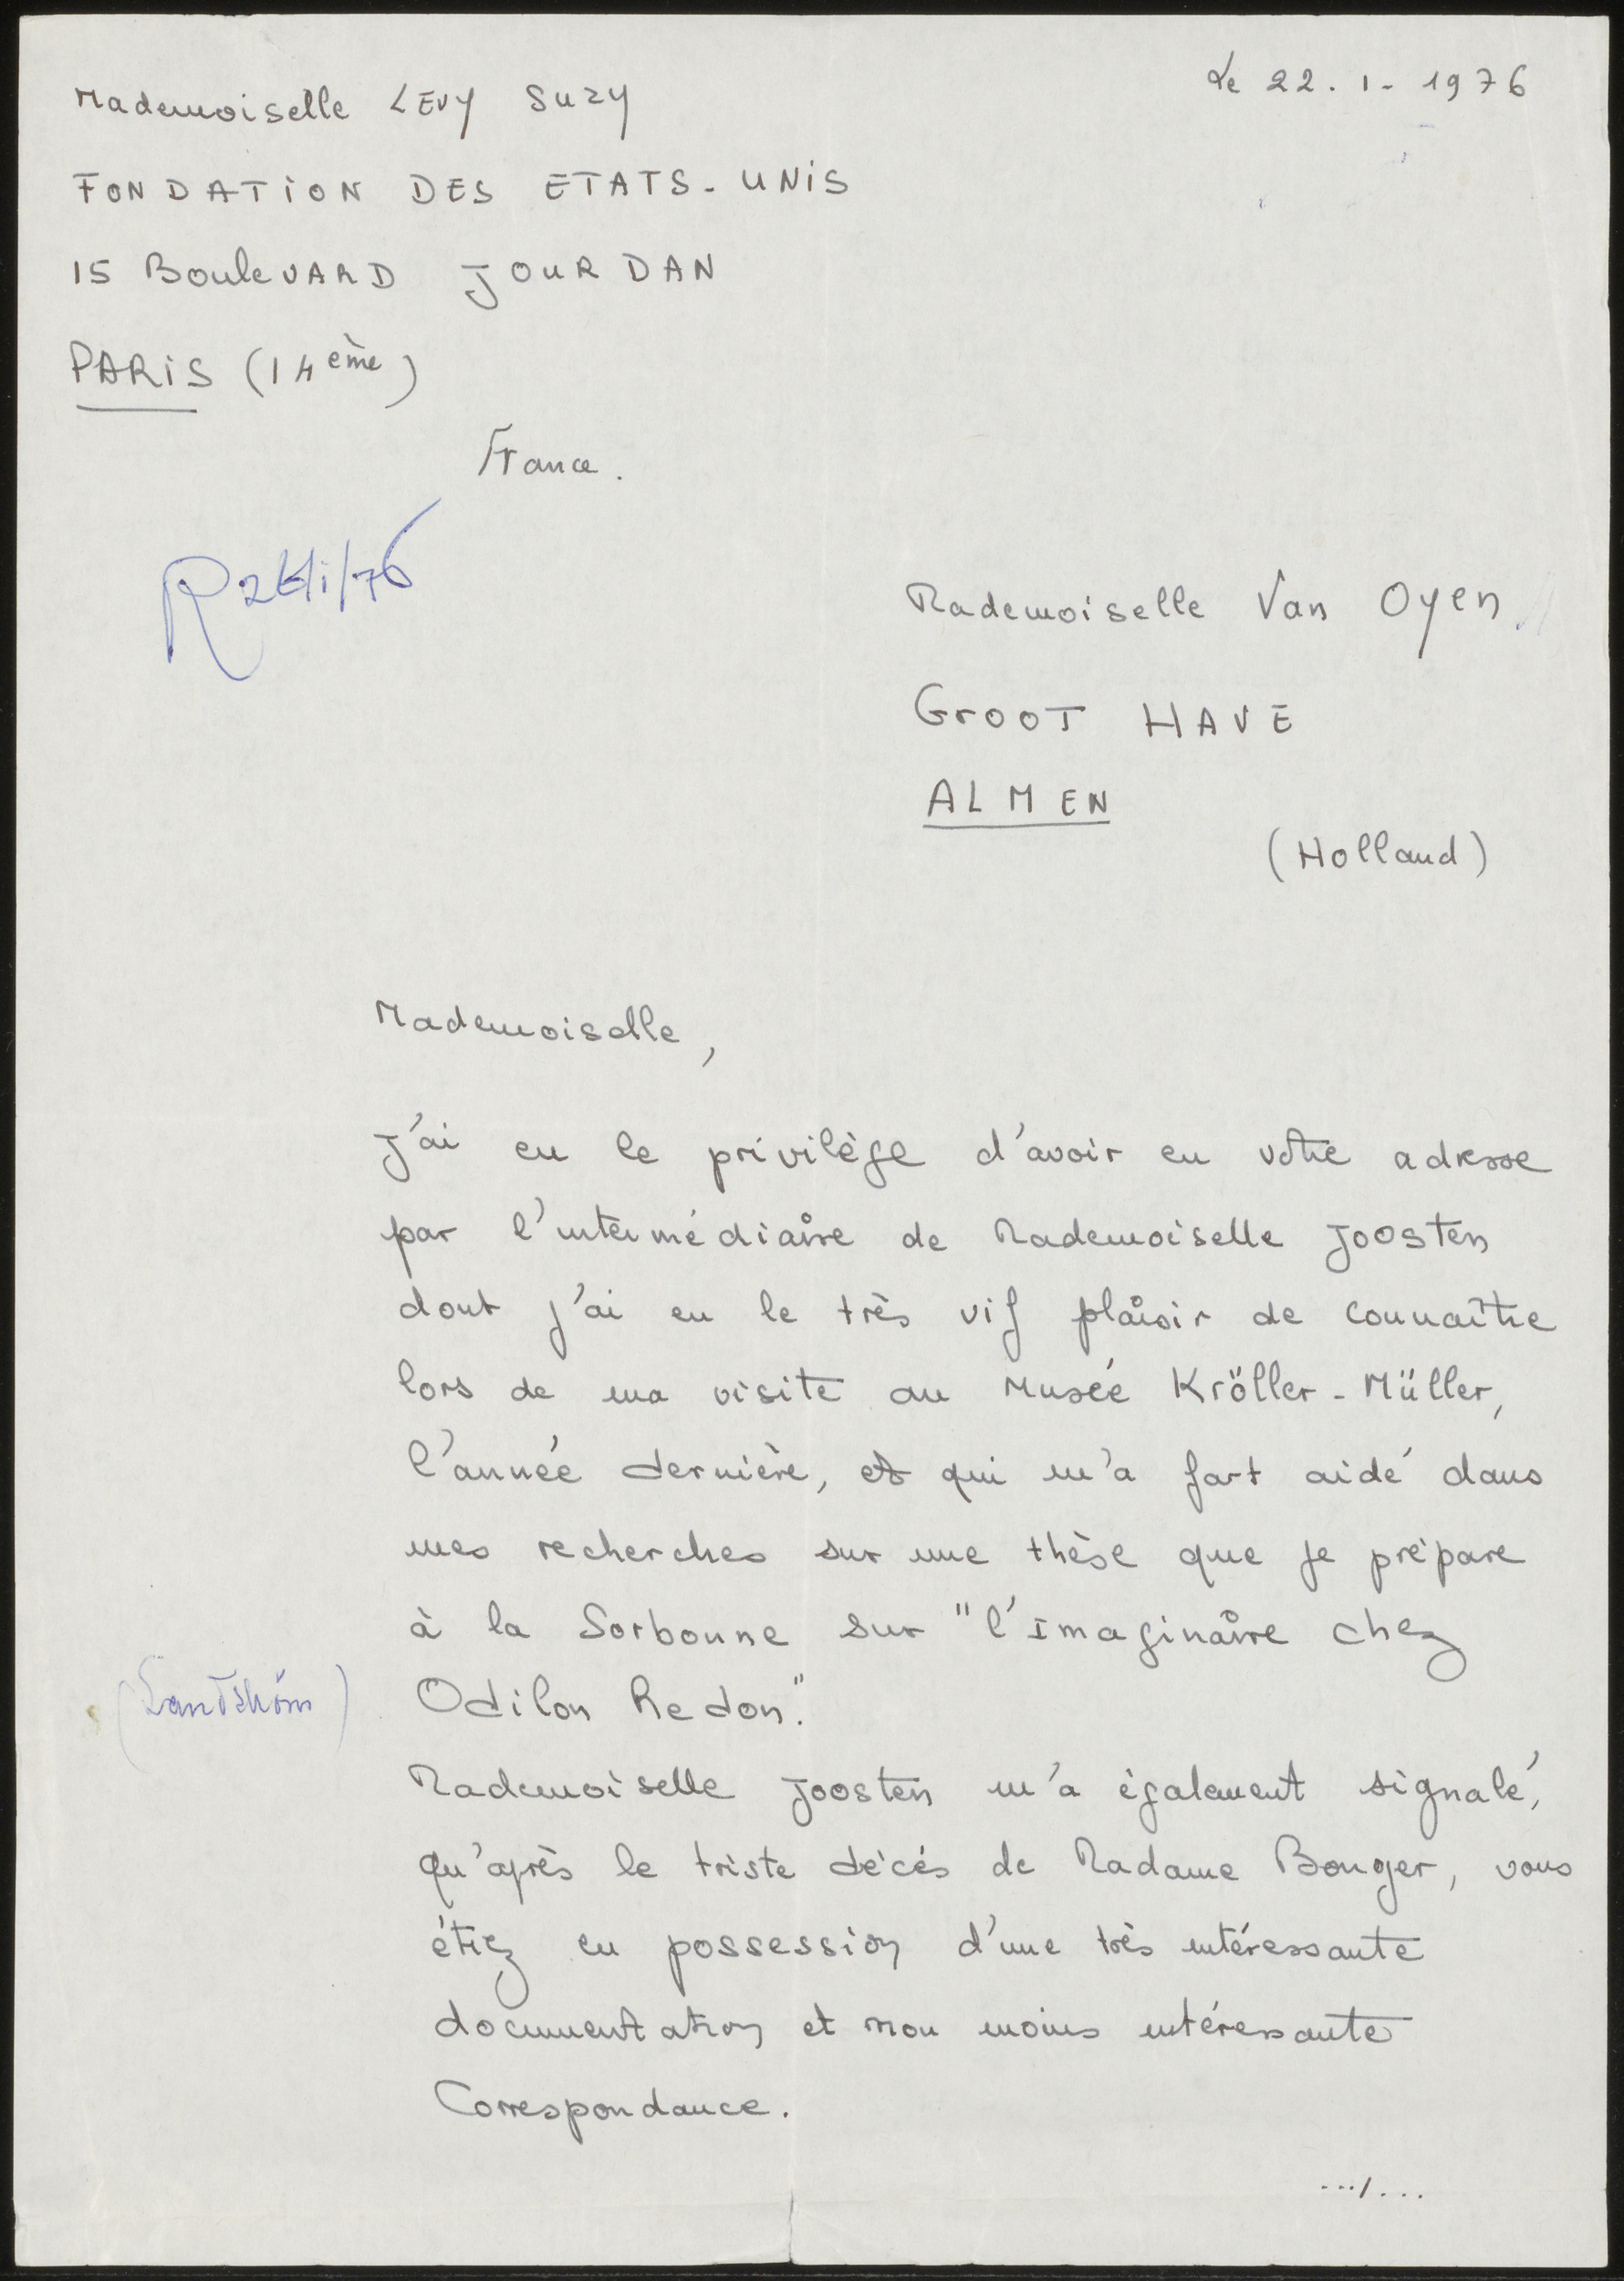 Le 22.1-1976
Mademoiselle LEVY SUZY
FONDATION DES ETATS-UNIS
15 BouleVARD JOURDAN
PARIS (14ème)
France.
Mademoiselle Van Oyen
GrOOT HAVE
ALMEN
(Holland)
Mademoiselle,
J'ai eu le privilège d'avoir eu votre adresse
par l'intermédiaire de Mademoiselle Joosten
dont j'ai eu le très vif plaisir de connaître
lors de ma visite au Musée Kröller-Müller,
l'année dernière, et qui m'a fort aidé dans
mes recherches sur une thèse que je prépare
à la Sorbonne sur "l'Imaginaire chez
Odilon Redon".
Mademoiselle Joosten m'a également signalé,
qu'après le triste décés de Madame Bonger, vous
étiez en possession d'une très intéressante
documentation et non moins intéressante
Correspondance.
.../...